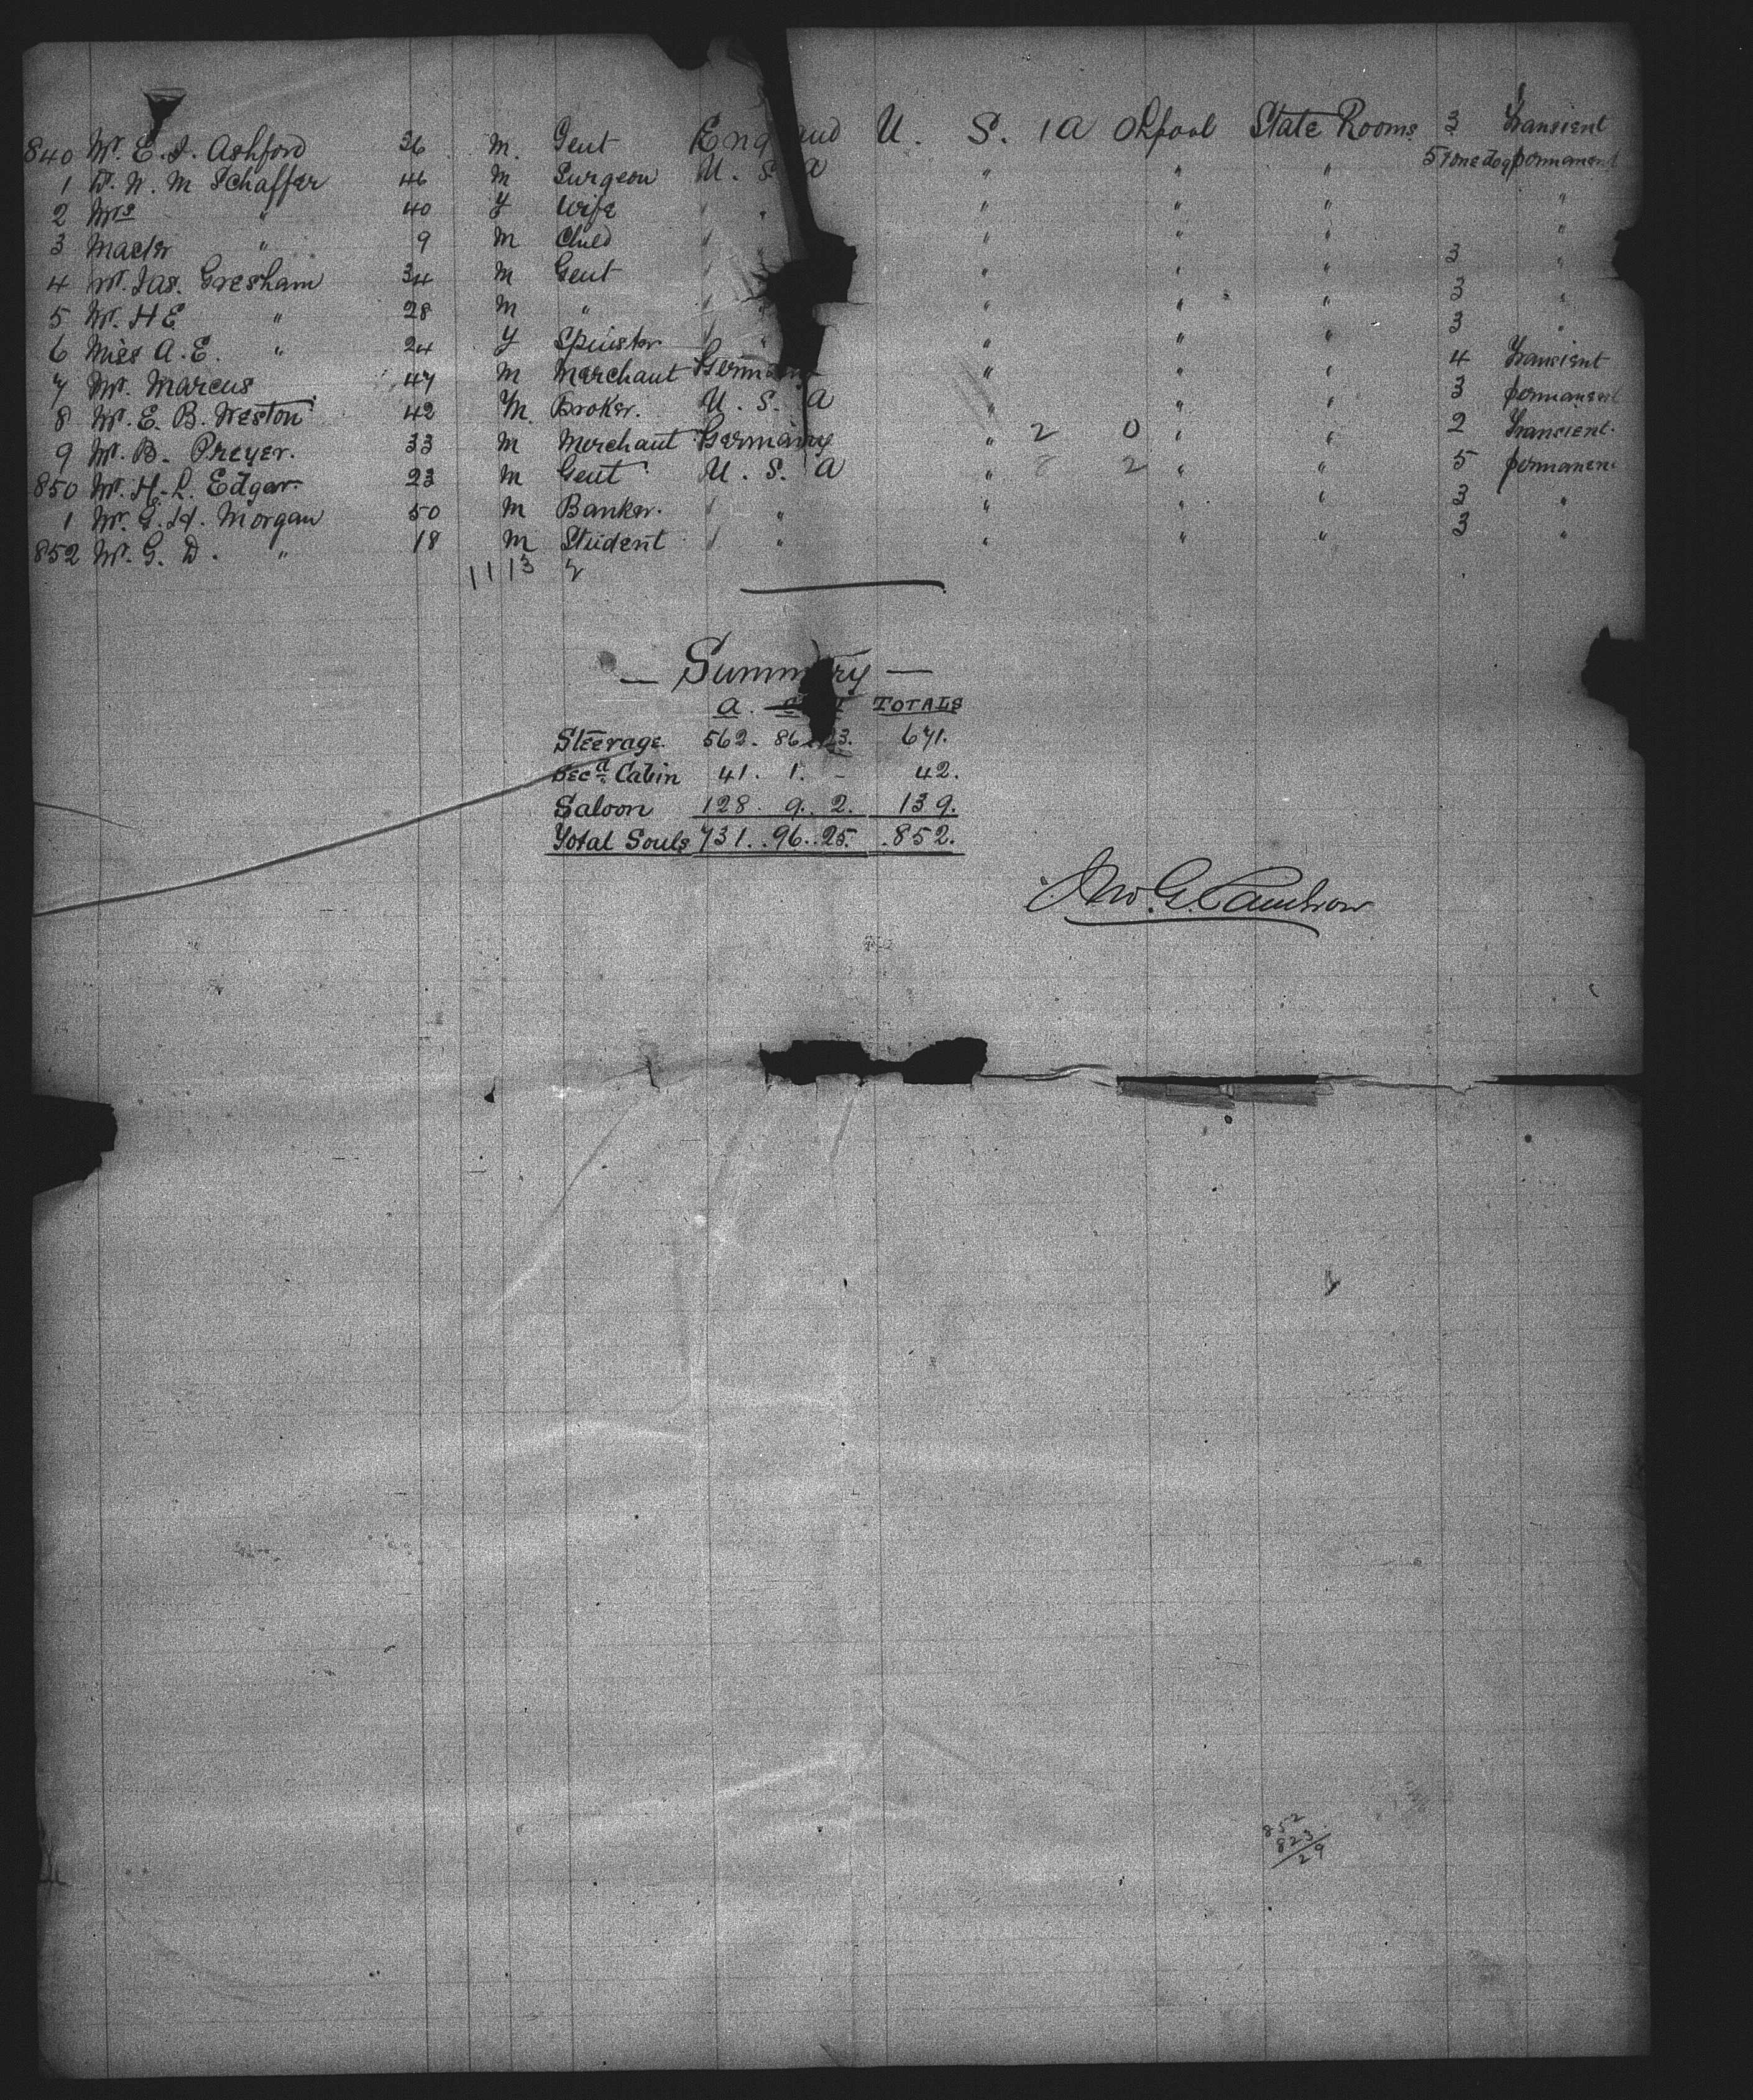 840 Mr. E. J. Ashford 36 M. Gent England U. S. A L'pool State Rooms 3 Transient
1 Dr. N. M Schaffer 46 M Surgeon U. S. A " " " 5 1 one dog permanent
2 Mrs " 40 F Wife " " " " " "
3 Master " 9 M Child " " " " " "
4 Mr. Jas. Gresham 34 M Gent " " " " " 3 "
5 Mr. H E " 28 M " " " " " " 3 "
6 Miss A. E. " 24 F Spinster " " " " " 3 "
7 Mr. Marcus 47 M Merchant Germany " " " 4 Transient
8 Mr. E. B. Weston 42 M Broker. U. S. A " " " 3 permanent
9 Mr. B. Preyer. 33 M Merchant Germany " 2 0 " " 2 Transient.
850 Mr. H. L. Edgar. 23 M Gent U. S. A " 8 2 " " 5 permanent
1 Mr. E. H. Morgan 50 M Banker. " " " " " 3 "
852 Mr. G. D. " 18 M Student " " " " " 3 "
11 13 2
— Summary —
A. TOTALS
Steerage. 562. 86. 23. 671.
Secd Cabin 41. 1. - 42.
Saloon 128. 9. 2. 139.
Total Souls 731. 96. 25. 852.
Jno. G. Cameron
852
823
29